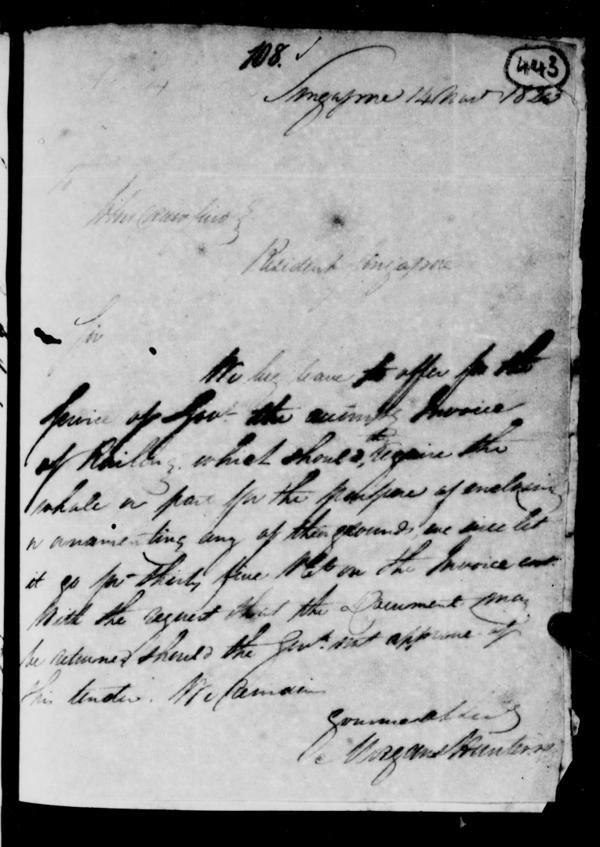 108.
443
Singapore 14 Novr 1823
To
John Crawfurd Esq
Resident Singapore
Sir
We beg leave to offer for the
Service of Govt. the accompg Invoice
of Railing. which should they require the
whole or part for the purpose of enclosing
or ornamenting any of their grounds, we will let
it go for thirty five on the Invoice cost.
With the request that the Document may
be returned should the Govt. not approve of
this tender. We remain
Your
Morgans Hunter